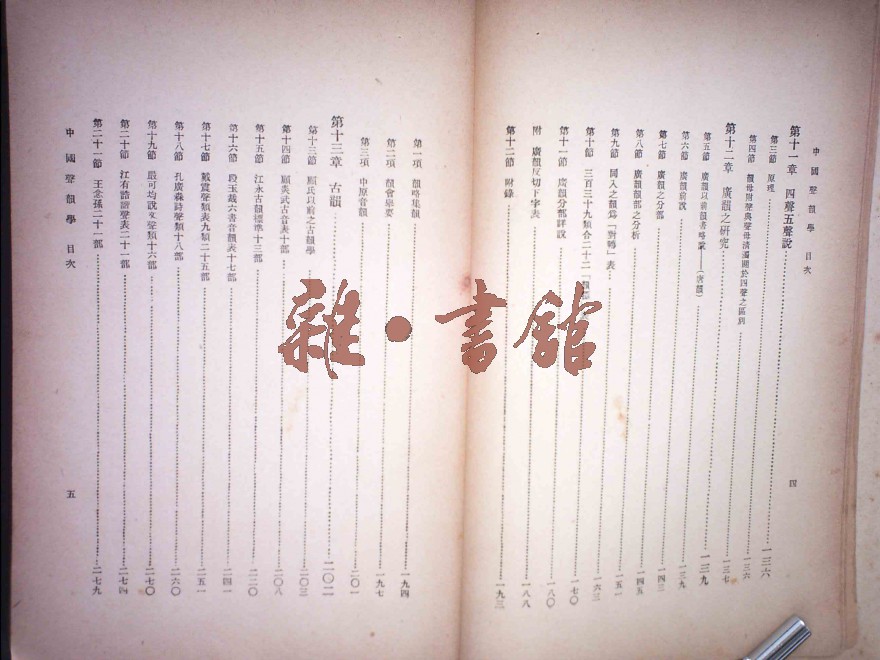 中國聲韻學 目次
第十一章 四聲五聲說
第三節 原理 一三六
第四節 韻母附聲與聲母清濁關於四聲之區別 一三六
第十二章 廣韻之研究 一三七
第五節 廣韻以前韻書略說——(唐韻) 一三九
第六節 廣韻前說 一三九
第七節 廣韻之分部 一四三
第八節 廣韻韻部之分析 一四五
第九節 同入之韻爲「對轉」表 一五一
第十節 三百三十九類合二十二 一六三
第十一節 廣韻分部詳說 一七〇
附 廣韻反切下字表 一八〇
第十二節 附錄 一八八
一九三
四
第一項 韻略集韻 一九四
第二項 韻會舉要 一九七
第三項 中原音韻 二〇一
第十三章 古韻 二〇二
第十三節 顧氏以前之古韻學 二〇三
第十四節 顧炎武古音表十部 二〇八
第十五節 江永古韻標準十三部 二二〇
第十六節 段玉裁六書音韻表十七部 二四一
第十七節 戴震聲類表九類二十五部 二五一
第十八節 孔廣森詩聲類十八部 二六〇
第十九節 嚴可均說文聲類十六部 二七〇
第二十節 江有誥諧聲表二十一部 二七四
第二十一節 王念孫二十一部 二七九
中國聲韻學 目次
五
雜•書館